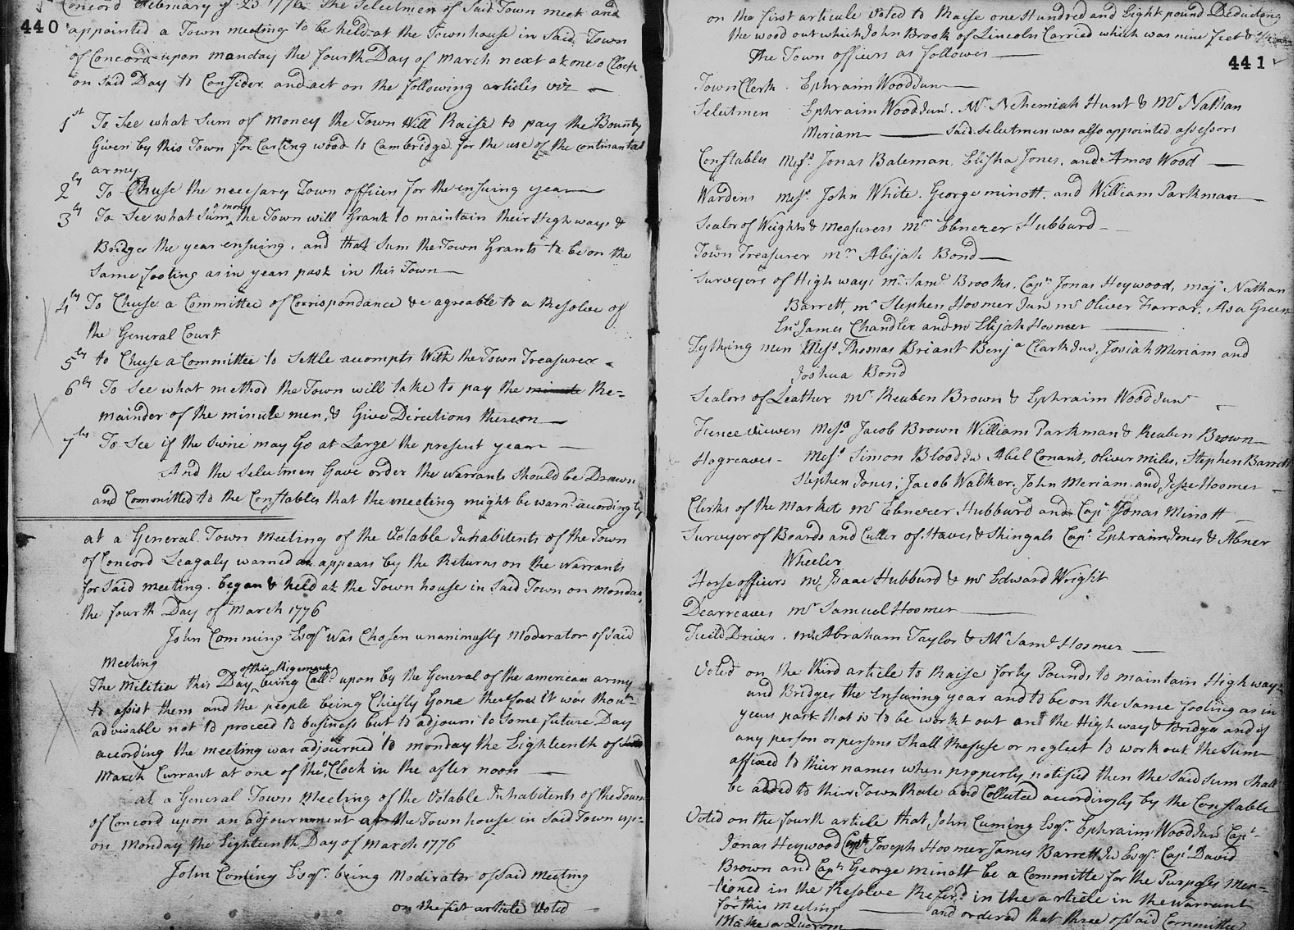 440
Concord February ye 23 1776. The Selectmen of Said Town meet and
appointed a Town meeting to be held at the Townhouse in Said Town
of Concord upon monday the fourth Day of March next at one o Clock
on Said Day to Consider and act on the following articles viz
1st To See what Sum of money the Town Will Raise to pay the Bounty
Given by this Town for Carting wood to Cambridge for the use of the continantal
army
2ly To Chuse the necesary Town officers for the ensuing year
3ly To See what Sum of mony the Town will Grant to maintain their High ways &
Bridges the year ensuing. and that Sum the Town Grants to be on the
Same footing as in years past in this Town
4ly To Chuse a Committee of Corrispondance &c agreable to a Resolve of
the General Court
5ly to Chuse a Committee to Settle accompts With the Town Treasurer
6ly To See what method the Town will take to pay the minute Re=
mainder of the minute men, & Give Directions thereon
7ly To See if the Swine may Go at Large the present year
And the Selectmen Gave order the warrants Should be Drawn
and Committed to the Constables that the meeting might be warn accordingly
at a General Town Meeting of the Votable Inhabitents of the Town
of Concord Leagaly warned as appears by the Returns on the warrants
for Said meeting. began & held at the Town house in Said Town on monday
the fourth Day of March 1776
John Comming Esqr was Chosen unanimasly Moderator of Said
Meeting
The Militia this Day of this Rigement being Calld upon by the General of the american army
to assist them and the people being Chiefly Gone therefore it was thou=
advisable not to proceed to business but to adjourn to Some future Day
acording the meeting was adjourned to monday the Eighteenth of
March Currant at one of the Clock in the after noon
at a General Town Meeting of the Votable Inhabitents of the Town
of Concord upon an adjournment at the Town house in Said Town up=
on Monday the Eighteenth Day of March 1776
John Coming Esqr. being Modirator of Said Meeting
on the first article Voted
on the first articule Voted to Raise one Hundred and Eight pound Deducting
the wood out which John Brook of Lincoln Carried which was nine feet &
The Town officers as followes
441
Town Clerk . Ephraim Wood Jun
Selectmen Ephraim Wood Junr. Mr Nehemiah Hunt & Mr Nathan
Meriam Said Selectmen was also appointed assessors
Constables Messrs Jonas Bateman, Elisha Jones, and Amos Wood
Wardens Messrs John White. George minott, and William Parkman
Sealor of Weights & Measurers Mr Ebenezer Hubbard
Town Treasurer mr Abijah Bond
Surveyors of High ways mr Saml Brooks, Capt Jonas Heywood, majr Nathan
Barrett, mr Stephen Hosmer Jun mr Oliver Farrar, Asa Green
Ens James Chandler and mr Elijah Hosmer
Tything men Messrs Thomas Briant Benja Clark Jur, Josiah Meriam and
Joshua Bond
Sealors of Leather mr Reuben Brown & Ephraim Wood Junr
Fence viewers Messrs Jacob Brown William Parkman & Reuben Brown
Hogreaves - Messrs Simon Blood Jur Abel Conant, Oliver Miles, Stephen Barrett
Stephen Jones, Jacob Walker, John Meriam and Jesse Hosmer
Clerks of the Market mr Ebenezer Hubburd and Capt Jonas Minott
Surveyor of Boards and Culler of Staves & Shingals Capt Ephraim Jones & Abner
Wheeler
Horse officers mr Isaac Hubburd & mr Edward Wright
Dearreaves mr Samuel Hosmer
mr Abraham Taylor & Mr Saml Hosmer
Voted on the third article to Raise forty Pounds to maintain High way=
and Bridges the Ensuring year and to be on the Same footing as in
years past that is to be workt out on the High ways & Bridges and if
any person or persons Shall Reffuse or neglect to work out the Sum
affixed to thier names when properly notified then the Said Sum Shall
be added to thier Town Rate and Collected accordingly by the Constable
Voted on the fourth article that John Cuming Esqr. Ephraim Wood Jur Capt.
Jonas Heywood Capt Joseph Hosmer James Barrett Jur Esqr. Capt David
Brown and Capt George minott be a Committe for the Purposes Men=
tioned in the Resolve Referd in the article in the warrant
for this meeting and ordered that three of Said Committee
Make a Quorom